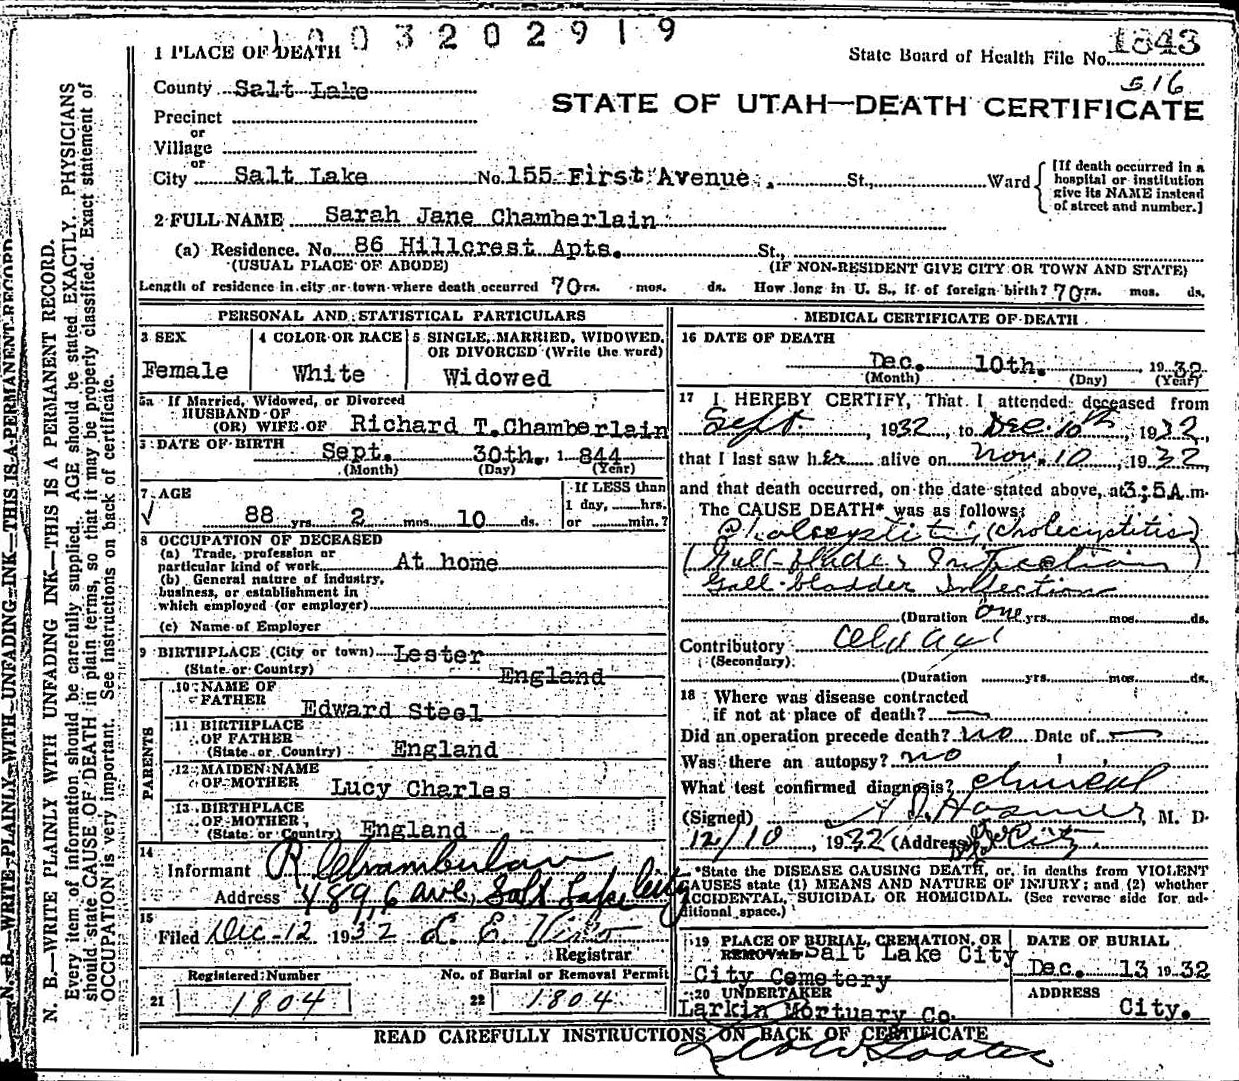 1003202919
1 PLACE OF DEATH
State Board of Health File No. 1843
516
County Salt Lake
STATE OF UTAH—DEATH CERTIFICATE
Precinct
or
Village
or
City Salt Lake No. 155 First Avenue. St., Ward
[If death occurred in a
hospital or institution
give its NAME instead
of street and number.]
2 FULL NAME Sarah Jane Chamberlain
(a) Residence. No. 86 Hillcrest Apts. St.,
(USUAL PLACE OF ABODE) (IF NON-RESIDENT GIVE CITY OR TOWN AND STATE)
Length of residence in city or town where death occurred 70 yrs. mos. ds. How long in U. S., if of foreign birth? 70 yrs. mos. ds.
PERSONAL AND STATISTICAL PARTICULARS
3 SEX
Female
4 COLOR OR RACE
White
5 SINGLE, MARRIED, WIDOWED,
OR DIVORCED (Write the word)
Widowed
5a If Married, Widowed, or Divorced
HUSBAND OF
(OR) WIFE OF Richard T. Chamberlain
6 DATE OF BIRTH
Sept. 30th. 1 844
(Month) (Day) (Year)
7 AGE
88 yrs. 2 mos. 10 ds.
If LESS than
1 day, hrs.
or min.?
8 OCCUPATION OF DECEASED
(a) Trade, profession or
particular kind of work At home
(b) General nature of industry,
business, or establishment in
which employed (or employer)
(c) Name of Employer
9 BIRTHPLACE (City or town) Lester
(State or Country) England
PARENTS
10 NAME OF
FATHER Edward Steel
11 BIRTHPLACE
OF FATHER
(State or Country) England
12 MAIDEN NAME
OF MOTHER Lucy Charles
13 BIRTHPLACE
OF MOTHER,
(State or Country) England
14
Informant R Chamberlain
Address 489, 6 ave, Salt Lake City
15
Filed Dec - 12 1932 L. E.
Registrar
Registered Number
21 1804
No. of Burial or Removal Permit
22 1804
MEDICAL CERTIFICATE OF DEATH
16 DATE OF DEATH
Dec. 10th. 1932
(Month) (Day) (Year)
17 I HEREBY CERTIFY, That I attended deceased from
Sept. , 1932, to Dec. 10th, 1932,
that I last saw her alive on Nov. 10, 1932,
and that death occurred, on the date stated above, at 3:5 A.m.
The CAUSE DEATH* was as follows:
(Cholecystitis)
(Gall-bladder Infection)
Gall-bladder Infection
(Duration One yrs. mos. ds.
Contributory Old age
(Secondary)
(Duration yrs. mos. ds.
18 Where was disease contracted
if not at place of death? —
Did an operation precede death? no Date of —
Was there an autopsy? no
What test confirmed diagnosis? clinical
(Signed) Hosmer, M. D.
12/10, 1932 (Address) City
*State the DISEASE CAUSING DEATH, or, in deaths from VIOLENT
CAUSES state (1) MEANS AND NATURE OF INJURY; and (2) whether
ACCIDENTAL, SUICIDAL OR HOMICIDAL. (See reverse side for ad-
ditional space.)
19 PLACE OF BURIAL, CREMATION, OR
REMOVAL Salt Lake City
City Cemetery
DATE OF BURIAL
Dec. 13 1932
20 UNDERTAKER
Larkin Mortuary Co.
ADDRESS
City.
READ CAREFULLY INSTRUCTIONS ON BACK OF CERTIFICATE
N. B.—WRITE PLAINLY WITH UNFADING INK—THIS IS A PERMANENT RECORD.
N. B.—WRITE PLAINLY WITH UNFADING INK—THIS IS A PERMANENT RECORD.
Every item of information should be carefully supplied. AGE should be stated EXACTLY. PHYSICIANS
should state CAUSE OF DEATH in plain terms, so that it may be properly classified. Exact statement of
OCCUPATION is very important. See instructions on back of certificate.